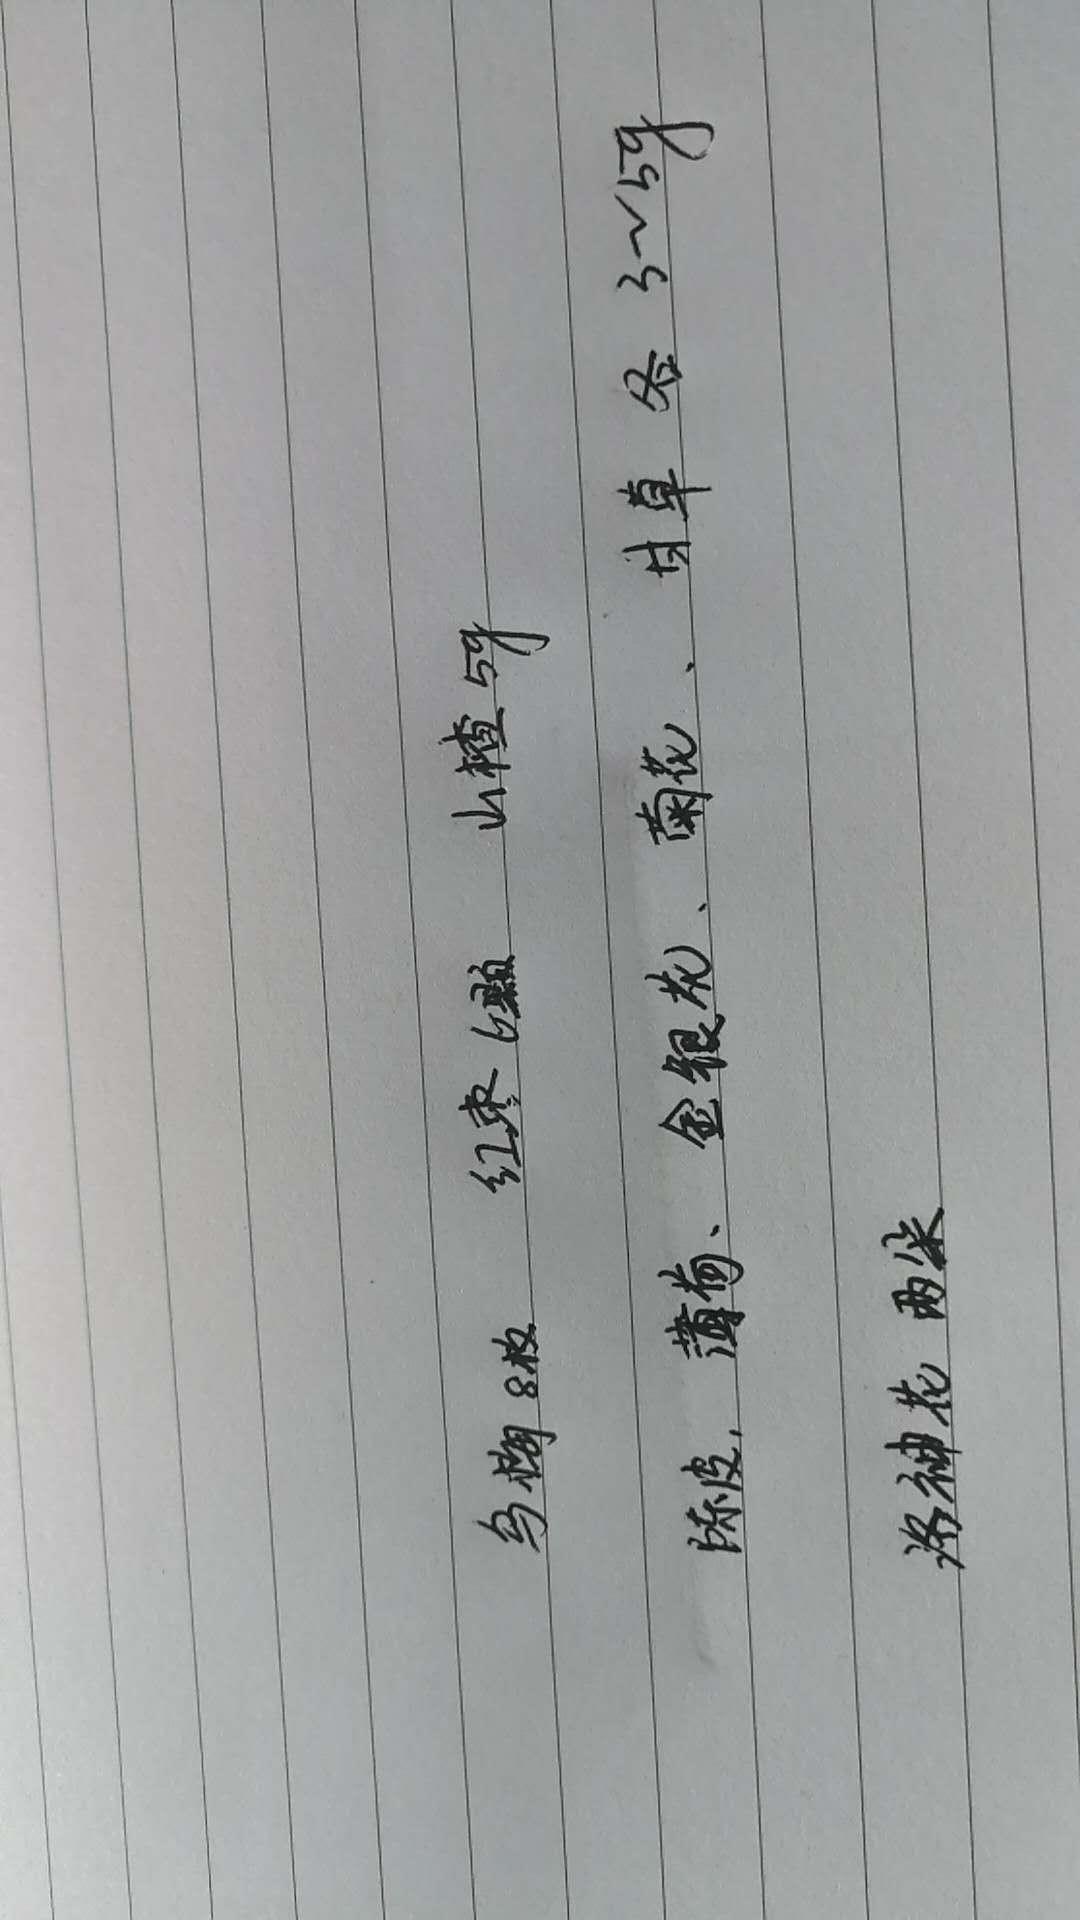 乌梅8枚 红枣6颗 山楂5g
陈皮，薄荷、金银花、菊花、甘草各3~5g
洛神花 两朵